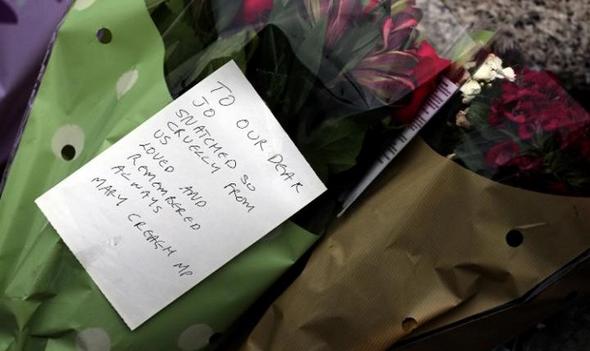 TO OUR DEAR
JO
SNATCHED SO
CRUELLY FROM
US
LOVED AND
REMEMBERED
ALWAYS
MARY CREAGH MP